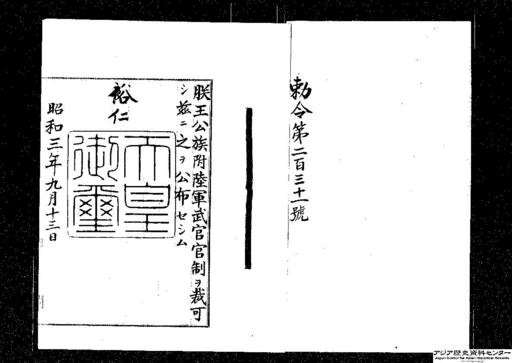 勅令第二百三十一號
朕王公族附陸軍武官官制ヲ裁可
シ茲ニ之ヲ公布セシム
裕仁
天皇
御璽
昭和三年九月十三日
アジア歴史資料センター
Japan Center for Asian Historical Records